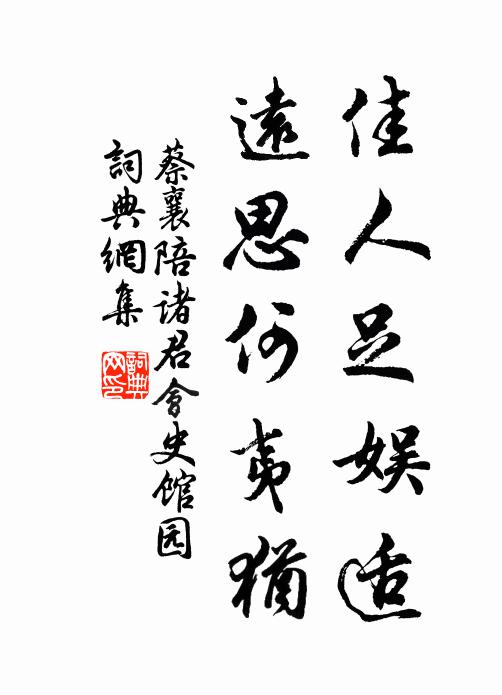 佳人足娱适
遠思何夷猶
蔡襄陪诸君會史馆园
詞典網集
詞典網印